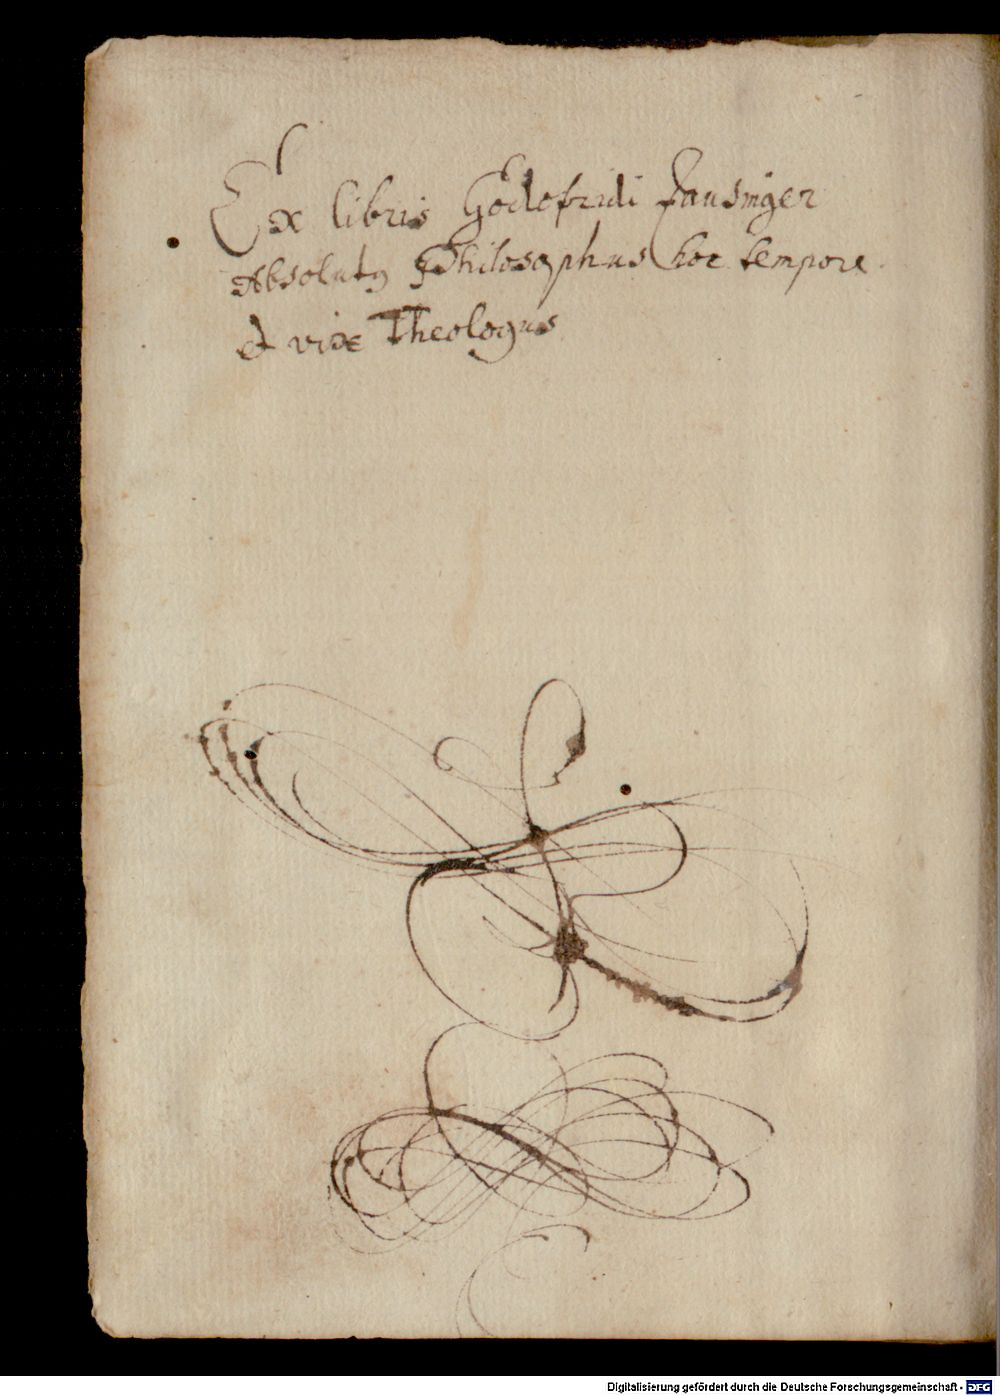 Ex libris Godefridi Fausinger
Absolutꝰ Philosophus hoc tempore
et vix Theologus
Digitalisierung gefördert durch die Deutsche Forschungsgemeinschaft - DFG